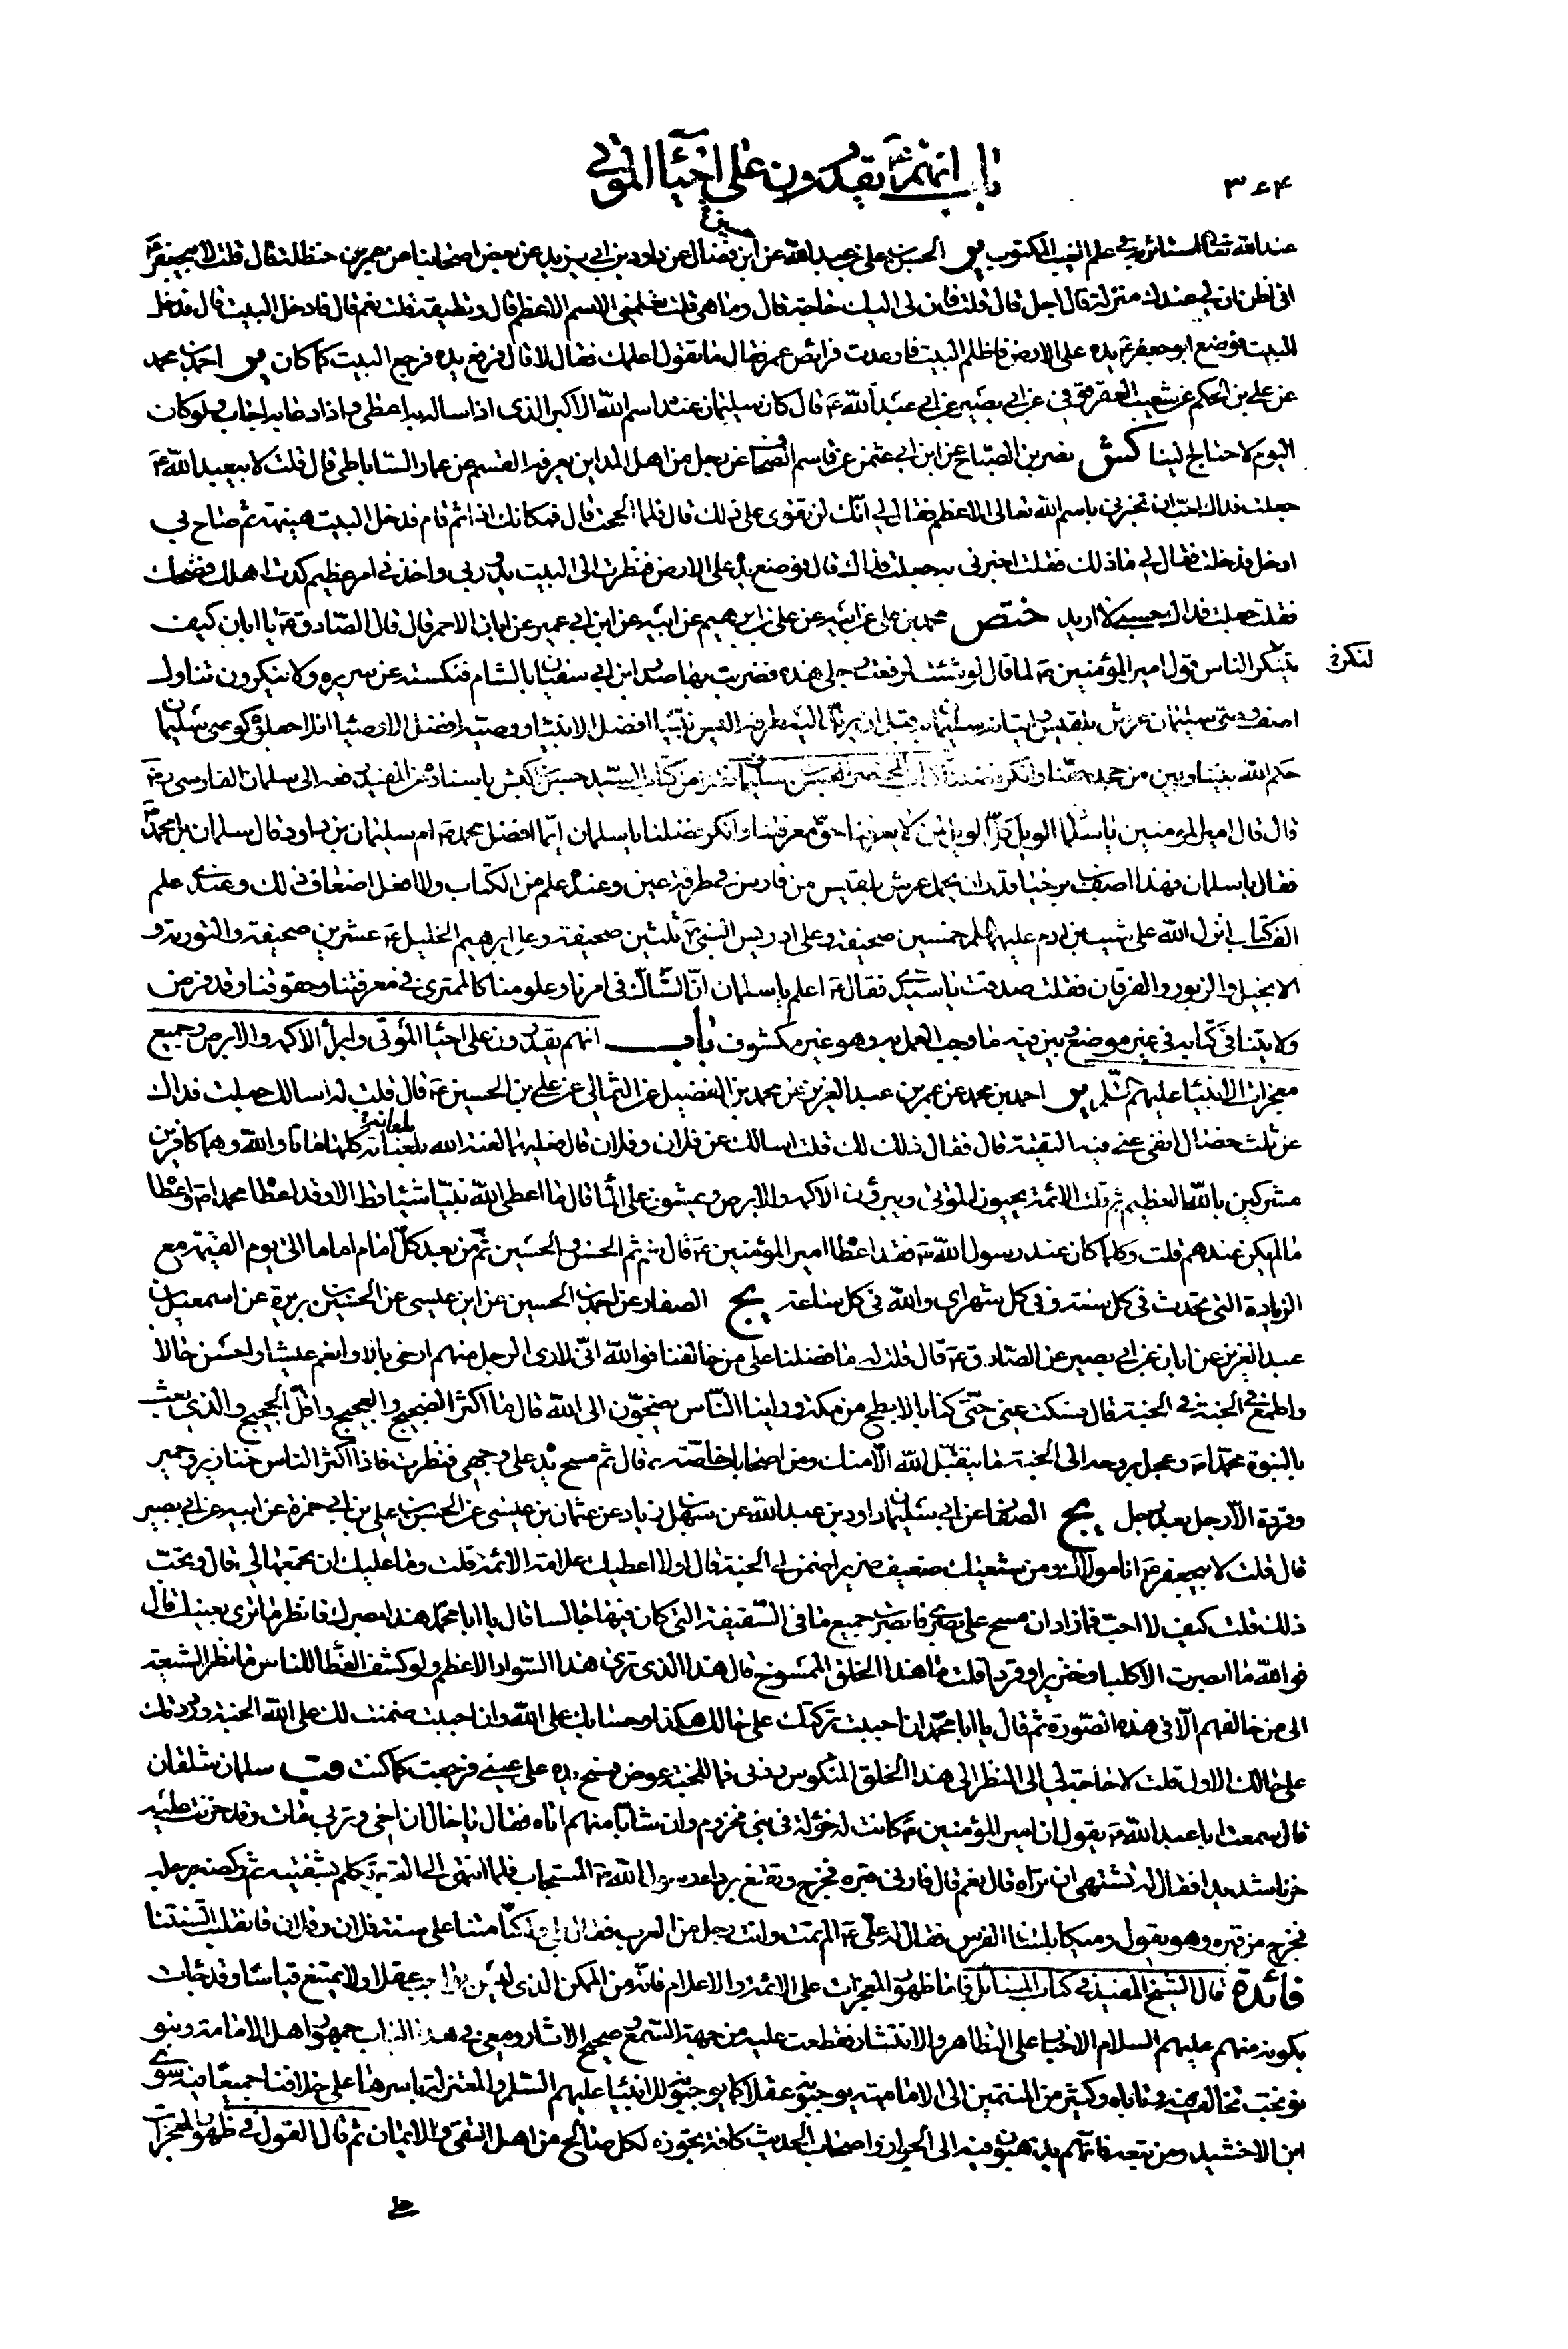 ٣٦٤
باب انهم ع يقدرون على احياء الموتى
عند الله تعالى المستاثر به في علم الغيب المكتوب ير الحسن بن علي بن عبد الله عن ابن فضال عن داود بن ابي يزيد عن بعض اصحابنا عن عمر بن حنظلة قال قلت لابيجعفر ع
اني اظن ان لي عندك منزلة قال اجل قال قلت فان لي اليك حاجة قال وما هي قلت تعلمني الاسم الاعظم قال وتطيقه قلت نعم قال فادخل البيت قال فدخل
البيت فوضع ابو جعفر ع يده على الارض فاظلم البيت فارعدت فرائص عمر فقال ما تقول اعلمك فقال لا قال فرفع يده فرجع البيت كما كان ير احمد بن محمد
عن علي بن الحكم عن شعيب العقرقوفي عن ابي بصير عن ابي عبد الله ع قال كان سليمان عنده اسم الله الاكبر الذي اذا ساله به اعطى واذا دعا به اجاب ولو كان
اليوم لاحتاج الينا كش نصر بن الصباح عن ابن ابي عثمن عن قاسم الصحاف عن رجل من اهل المداين يعرفه القسم عن عمار الساباطي قال قلت لابيعبد الله ع
جعلت فداك احب ان تخبرني باسم الله تعالى الاعظم فقال لي انك لن تقوى على ذلك قال فلما الححت قال فمكانك اذا ثم قام فدخل البيت هنيهة ثم صاح بي
ادخل فدخلت فقال لي ما ذلك فقلت اخبرني به جعلت فداك قال فوضع يده على الارض فنظرت الى البيت يدور بي واخذني امر عظيم كدت اهلك فضحك
فقلت جعلت فداك حسبي لا اريد ختص محمد بن علي عن ابيه عن علي بن ابرهيم عن ابيه عن ابن ابي عمير عن ابان الاحمر قال قال الصادق ع يا ابان كيف
تنكر الناس قول امير المؤمنين ع لما قال لو شئت لرفعت رجلي هذه فضربت بها صدر ابن ابي سفيان بالشام فنكسته عن سريره ولا ينكرون تناول
لتكرفي
اصف وصي سليمان عرش بلقيس واتيانه سليمان به قبل ان يرتد اليه طرفه اليس نبينا افضل الانبياء ووصيه افضل الاوصياء افلا جعلوه كوصي سليمان
حكم الله بيننا وبين من جحد حقنا وانكر فضلنا
قال قال امير المؤمنين يا سلمان الويل كل الويل لمن لا يعرف لنا حق معرفتنا وانكر فضلنا يا سلمان ايما افضل محمد ص ام سليمان بن داود قال سلمان بل محمد ص
فقال يا سلمان فهذا اصف بن برخيا قدر ان يحمل عرش بلقيس من فارس في طرفة عين وعنده علم من الكتاب ولا افعل اضعاف ذلك وعندي علم
الف كتاب انزل الله على شيث بن ادم عليهما السلم خمسين صحيفة وعلى ادريس النبي ع ثلثين صحيفة وعلى ابرهيم الخليل ع عشرين صحيفة والتورية و
الانجيل والزبور والفرقان فقلت صدقت يا سيدي فقال ع اعلم يا سلمان ان الشاك في امرنا وعلومنا كالممتري في معرفتنا وحقوقنا وقد فرض
ولايتنا في كتابه في غير موضع وبين فيه ما وجب العمل به وهو غير مكشوف باب انهم يقدرون على احياء الموتى وابراء الاكمه والابرص وجميع
معجزات الانبياء عليهم السلم ير احمد بن محمد عن عمر بن عبد العزيز عن محمد بن الفضيل عن الثمالي عن علي بن الحسين ع قال قلت له اسالك جعلت فداك
عن ثلث خصال انفي عني فيه التقية قال فقال ذلك لك قلت اسالك عن فلان وفلان قال فعليهما لعنة الله بلعناته كلها ماتا والله وهما كافرين
مشركين بالله العظيم ثم قلت الائمة يحيون الموتى ويبرؤن الاكمه والابرص ويمشون على الماء قال ما اعطى الله نبيا شيئا قط الا وقد اعطاه محمدا ص واعطاه
ما لم يكن عندهم قلت وكلما كان عند رسول الله ص فقد اعطاه امير المؤمنين ع قال نعم ثم الحسن والحسين ثم من بعد كل امام اماما الى يوم القيمة مع
الزيادة التي تحدث في كل سنة وفي كل شهر اي والله في كل ساعة يج الصفار عن احمد بن الحسين عن ابن عيسى عن الحسين بن بريرة عن اسمعيل بن
عبد العزيز عن ابان عن ابي بصير عن الصادق ع قال قلت له ما فضلنا على من خالفنا فوالله اني لارى الرجل منهم ارخى بالا وانعم عيشا واحسن حالا
واطمع في الجنة قال فسكت عني حتى كنا بالابطح من مكة وراينا الناس يضجون الى الله قال ما اكثر الضجيج والعجيج واقل الحجيج والذي بعث
بالنبوة محمدا ص وعجل بروحه الى الجنة ما يتقبل الله الا منك ومن اصحابك خاصة قال ثم مسح يده على وجهي فنظرت فاذا اكثر الناس خنازير وحمير
وقردة الا رجل بعد رجل يج الصفار عن ابي سليمان داود بن عبد الله عن سهل بن زياد عن عثمان بن عيسى عن الحسن بن علي بن ابي حمزة عن ابيه عن ابي بصير
قال قلت لابيجعفر ع انا مولاك ومن شيعتك ضعيف ضرير اضمن لي الجنة قال اولا اعطيك علامة الائمة قلت وما عليك ان تجمعها لي قال وتحب
ذلك قلت كيف لا احب فما زاد ان مسح على بصري فابصرت جميع ما في السقيفة التي كان فيها جالسا قال يا ابا محمد هذا بصرك فانظر ما ترى بعينيك قال
فوالله ما ابصرت الا كلبا وخنزيرا وقردا قلت ما هذا الخلق الممسوخ قال هذا الذي ترى هذا السواد الاعظم ولو كشف الغطاء للناس ما نظر الشيعة
الى من خالفهم الا في هذه الصورة ثم قال يا ابا محمد ان احببت تركتك على حالك هكذا وحسابك على الله وان احببت ضمنت لك على الله الجنة ورددتك
على حالك الاول قلت لا حاجة لي الى النظر الى هذا الخلق المنكوس ردني فما للجنة عوض فمسح يده على عيني فرجعت كما كنت قب سلمان شلقان
قال سمعت ابا عبد الله ع يقول ان امير المؤمنين ع كانت له خؤلة في بني مخزوم وان شابا منهم اتاه فقال يا خال ان اخي وتربي مات وقد حزنت عليه
حزنا شديدا فقال له تشتهي ان تراه قال نعم قال فارني قبره فخرج وتقنع برداء رسول الله ص المستجاب فلما انتهى الى القبر تكلم بشفتيه ثم ركضه برجله
فخرج من قبره وهو يقول وميكا بلسان الفرس فقال له علي ع الم تمت وانت رجل من العرب فقال بلى ولكنا متنا على سنة فلان وفلان فانقلبت السنتنا
فائدة قال الشيخ المفيد في كتاب المسائل فاما ظهور المعجزات على الائمة والاعلام فانه من الممكن الذي ليس بواجب عقلا ولا يمتنع قياسا وقد جاءت
بكونه منهم عليهم السلام الاخبار على التظاهر والانتشار فقطعت عليه من جهة السمع وصحيح الاثار ومعي في هذا الباب جمهور اهل الامامة وبنو
نوبخت تخالف فيه وتاباه وكثير من المنتمين الى الامامية يوجبونه عقلا كما يوجبونه للانبياء عليهم السلم والمعتزلة باسرها على خلافنا جميعا فيه سوى
ابن الاخشيد ومن تبعه فانهم يذهبون فيه الى الجواز واصحاب الحديث كافة تجوزه لكل صالح من اهل التقى والايمان ثم قال القول في ظهور المعجزات
على